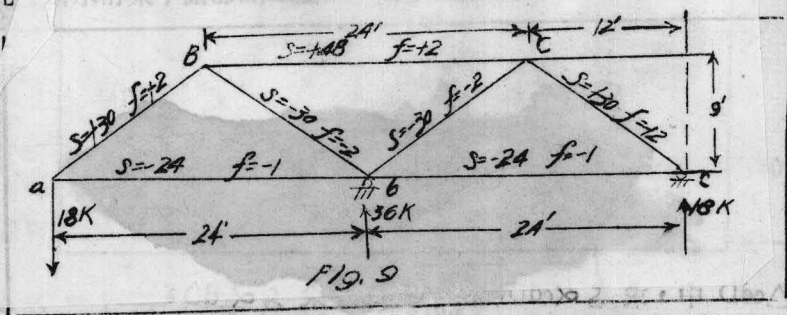 24'
12'
S=+48 f=+2
B
C
S=+30 f=+2
S=-30 f=-2
S=-30 f=-2
S=+30 f=+2
9'
S=-24 f=-1
S=-24 f=-1
a
b
c
18K
36K
18K
24'
24'
Fig. 9